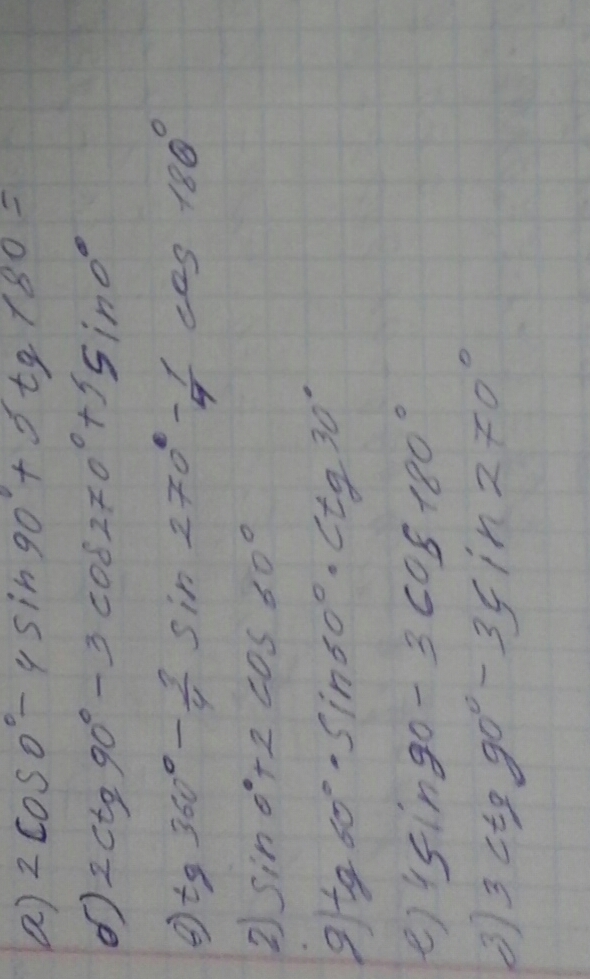 а) 2 cos 0° - 4 sin 90° + 5 tg 180 =
б) 2 ctg 90° - 3 cos 270° + 5 sin 0°
в) tg 360° - 3/4 sin 270° - 1/4 cos 180°
г) sin 0° + 2 cos 60°
д) tg 60° · sin 60° · ctg 30°
е) 4 sin 90 - 3 cos 180°
з) 3 ctg 90° - 3 sin 270°